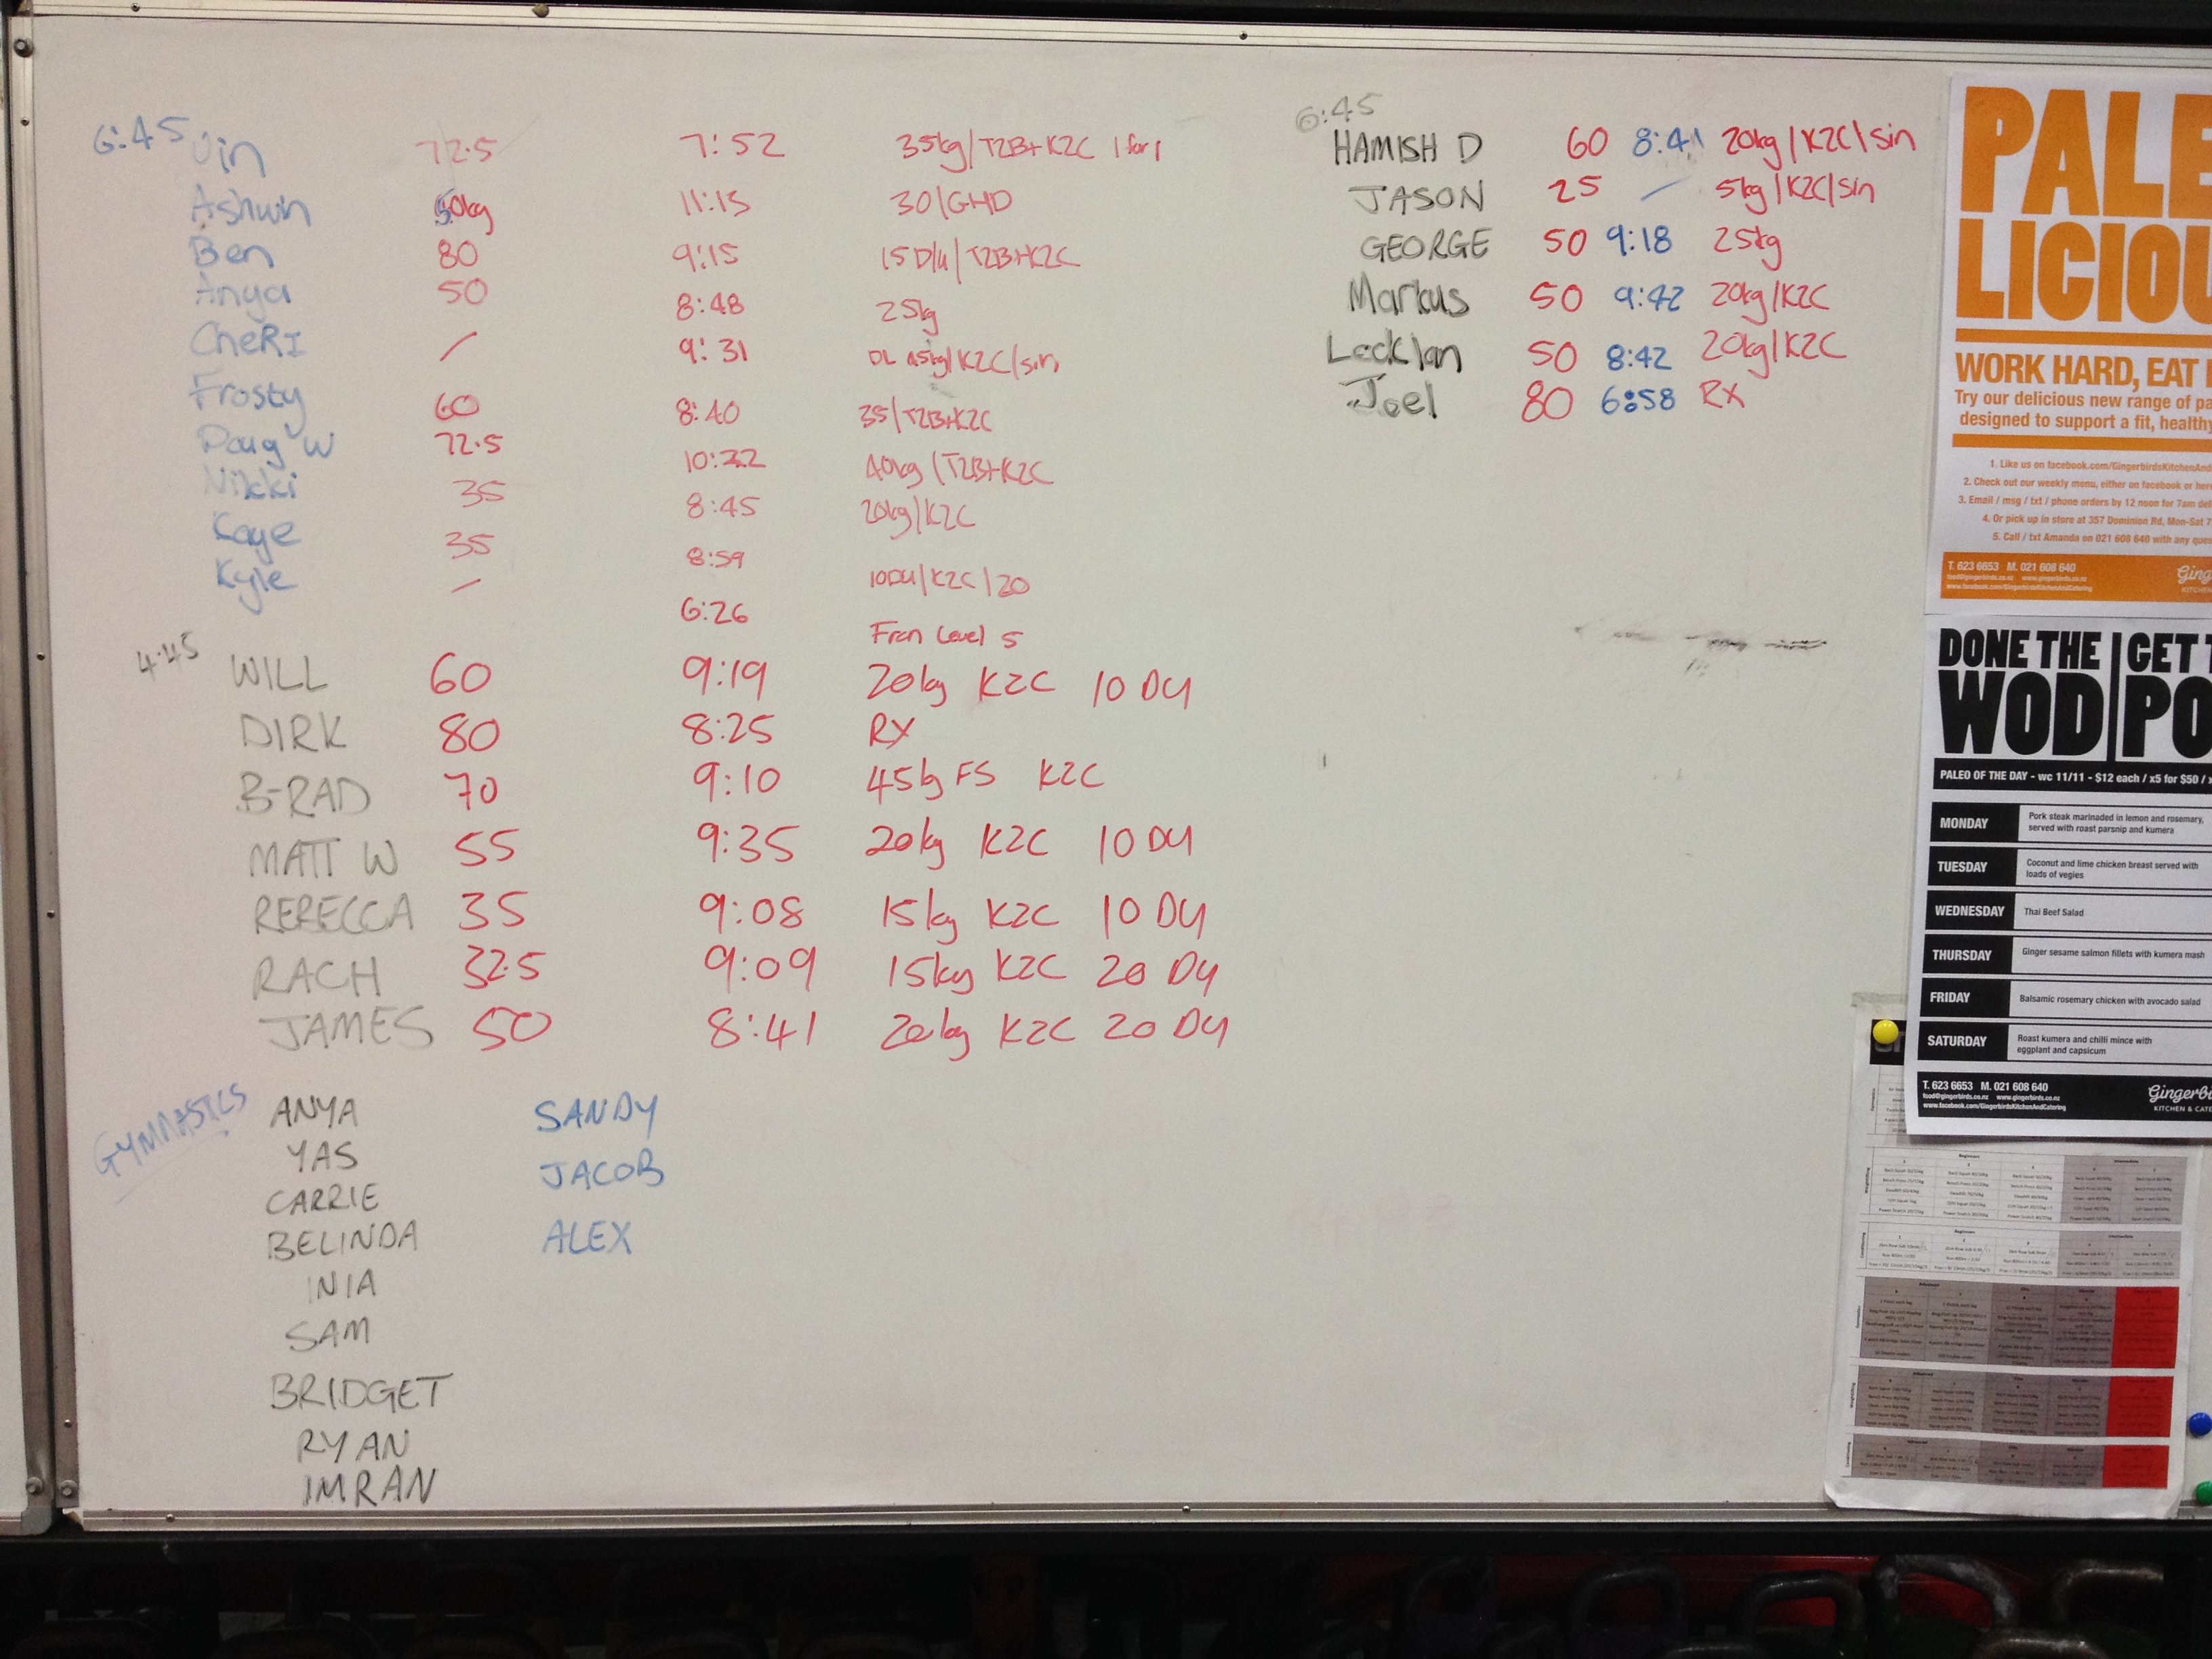 6:45
Vin 72.5 7:52 35kg/T2B+K2C 1 for 1
Ashwin 50kg 11:15 30/GHD
Ben 80 9:15 15 D/u/T2B+K2C
Anya 50 8:48 25kg
CheRI / 9:31 DL 45kg/K2C/sin
Frosty 60 8:40 35/T2B+K2C
Doug W 72.5 10:22 40kg/T2B+K2C
Nikki 35 8:45 20kg/K2C
Kaye 35 8:59 10DU/K2C/20
Kyle / 6:26 Fran Level 5
4:45
WILL 60 9:19 20kg K2C 10 DU
DIRK 80 8:25 RX
B-RAD 70 9:10 45kg FS K2C
MATT W 55 9:35 20kg K2C 10 DU
REBECCA 35 9:08 15kg K2C 10 DU
RACH 32.5 9:09 15kg K2C 20 DU
JAMES 50 8:41 20kg K2C 20 DU
GYMNASTICS
ANYA SANDY
YAS JACOB
CARRIE
BELINDA ALEX
INIA
SAM
BRIDGET
RYAN
IMRAN
6:45
HAMISH D 60 8:41 20kg/K2C/sin
JASON 25 / 5kg/K2C/sin
GEORGE 50 9:18 25kg
Markus 50 9:42 20kg/K2C
Locklan 50 8:42 20kg/K2C
Joel 80 6:58 RX
PALE
LICIOU
WORK HARD, EAT
Try our delicious new range of pa
designed to support a fit, healthy
1. Like us on facebook.com/GingerbirdsKitchenAnd
2. Check out our weekly menu, either on facebook or here
3. Email / msg / txt / phone orders by 12 noon for 7am del
4. Or pick up in store at 357 Dominion Rd, Mon-Sat 7
5. Call / txt Amanda on 021 608 640 with any ques
T. 623 6653 M. 021 608 640
food@gingerbirds.co.nz www.gingerbirds.co.nz
www.facebook.com/GingerbirdsKitchenAndCatering
Ging
KITCHEN
DONE THE GET T
WOD PO
PALEO OF THE DAY - wc 11/11 - $12 each / x5 for $50 /
MONDAY Pork steak marinaded in lemon and rosemary,
served with roast parsnip and kumera
TUESDAY Coconut and lime chicken breast served with
loads of vegies
WEDNESDAY Thai Beef Salad
THURSDAY Ginger sesame salmon fillets with kumera mash
FRIDAY Balsamic rosemary chicken with avocado salad
SATURDAY Roast kumera and chilli mince with
eggplant and capsicum
T. 623 6653 M. 021 608 640
food@gingerbirds.co.nz www.gingerbirds.co.nz
www.facebook.com/GingerbirdsKitchenAndCatering
Gingerbi
KITCHEN & CATE